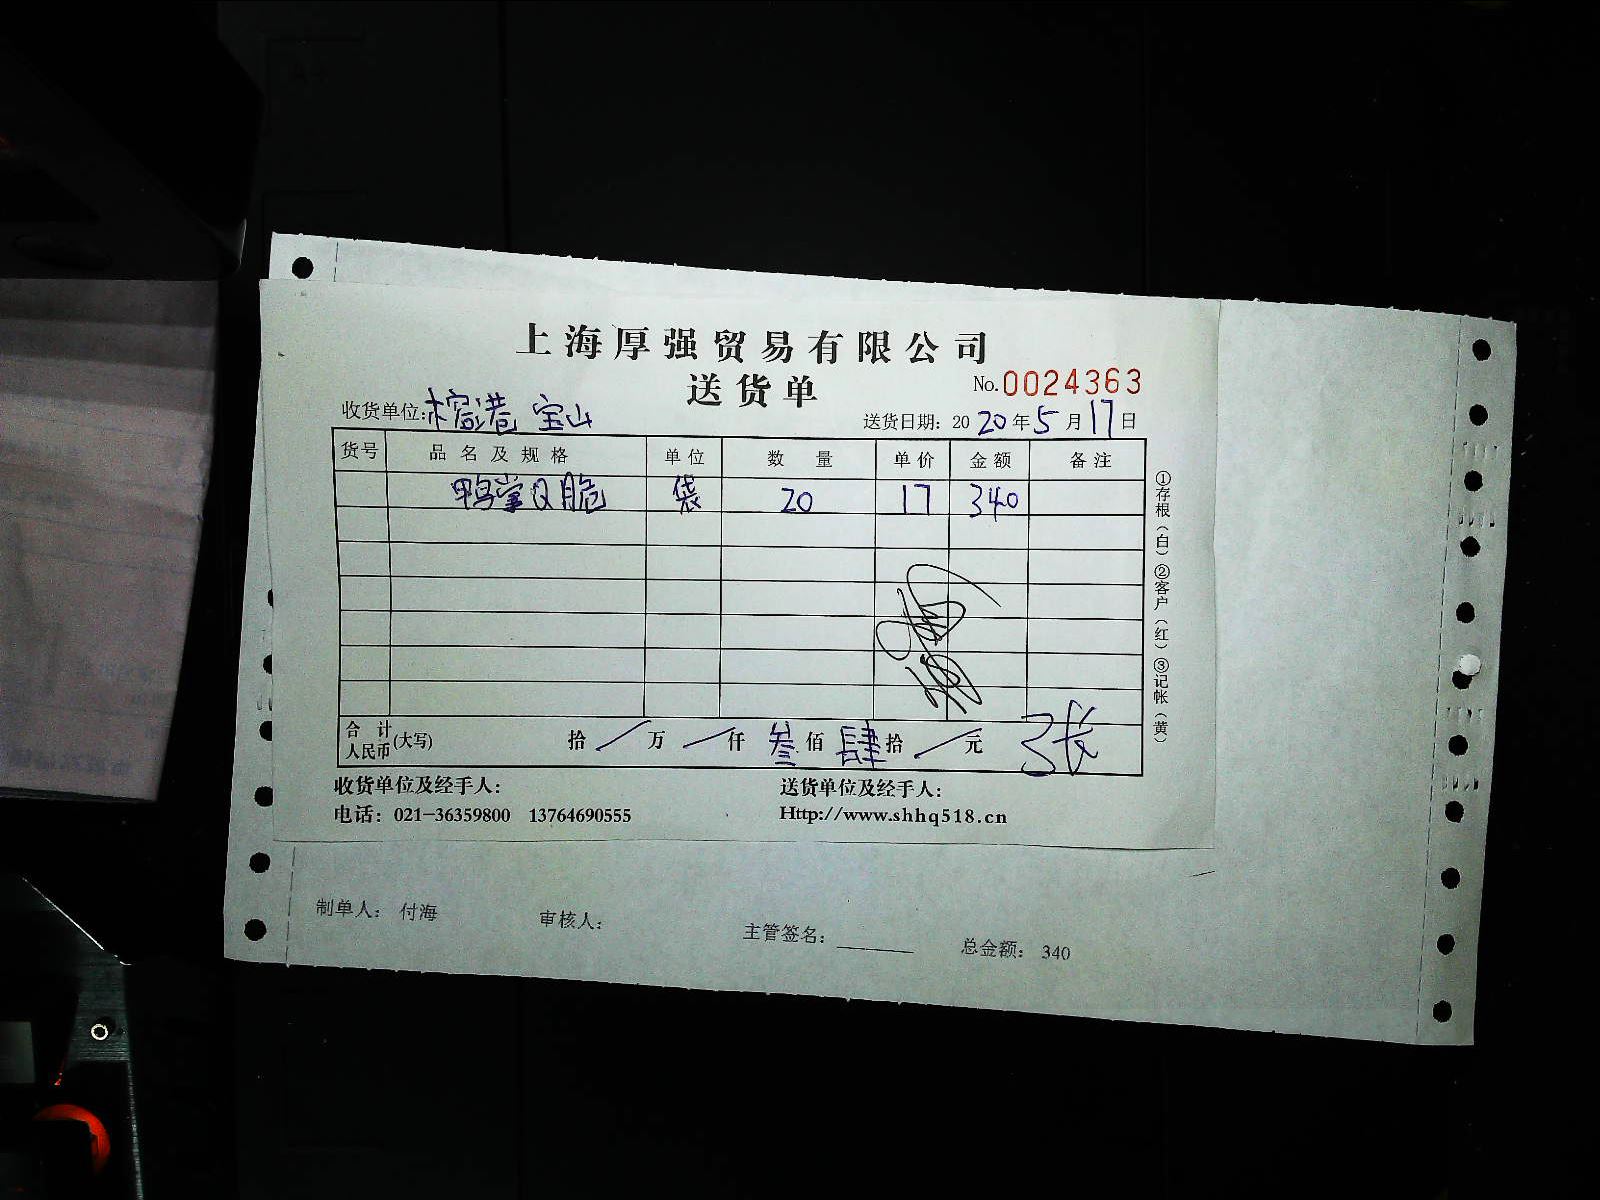 上海厚强贸易有限公司
送货单 No.0024363
收货单位: 榕港 宝山 送货日期: 2020年5月17日
货号 品名及规格 单位 数量 单价 金额 备注
鸭掌Q脆 袋 20 17 340
合计人民币(大写) 拾/万/仟叁佰肆拾/元 3张
收货单位及经手人: 送货单位及经手人:
电话: 021-36359800 13764690555 Http://www.shhq518.cn
①存根(白)②客户(红)③记帐(黄)
制单人: 付海 审核人: 主管签名: 总金额: 340